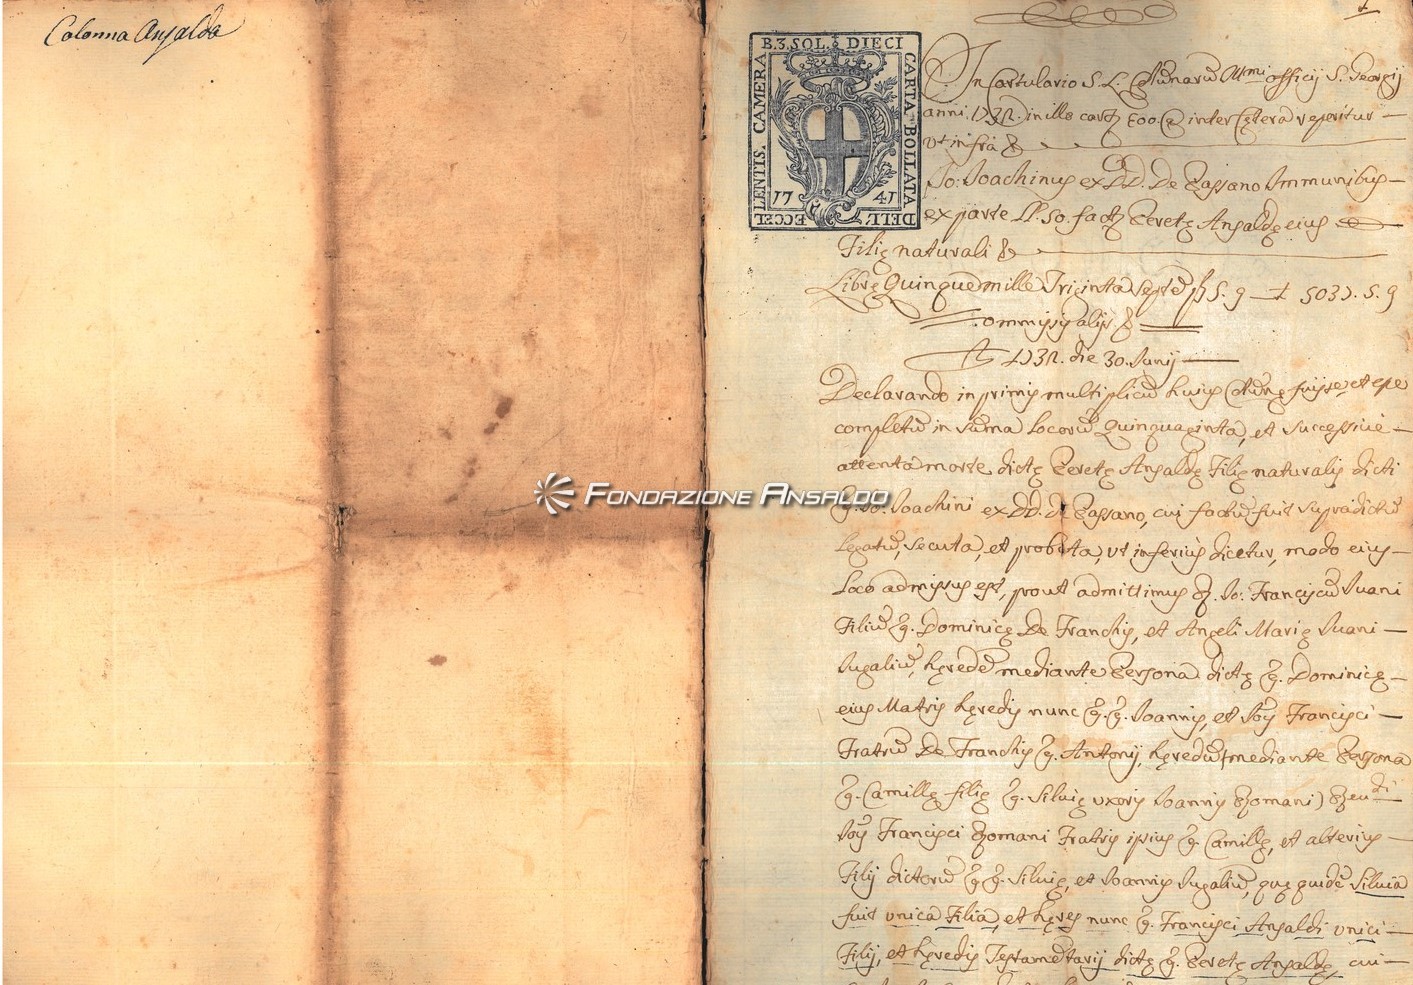 Colonna Ansalda
1
B.3. SOL. DIECI
CARTA BOLLATA
DELL'
ECCEL
LENTIS. CAMERA
1741
In Cartulario S. L. Colũnarũ Ill.mi officij S. Georgij
anni 1732. in illo cart 300. inter Cętera reperitur
vt infra &
Jo: Joachinus ex DD. De Passano Immunibus
ex parte LL. 50. fact Peretę Ansaldę eius
Filię naturali &
Librę Quinquemille Triginta septẽ S. 9 5037. S. 9
ommissis alijs &
1732. die 30. Junij
Declarando in primis multiplicũ huius Colũnę fuisse, et esse
completũ in sũma Locorũ Quinquaginta, et successiuè
attenta morte dictę Peretę Ansaldę Filię naturalis dicti
q. Jo: Joachini ex DD. de Passano, cui factũ fuit supradictũ
Legatũ, secuta, et probata, vt inferius dicetur, modo eius
Loco admissus est, prout admittimus Jo: Franciscũ Iuani
Filiũ q. Dominicę De Franchis, et Angeli Marię Iuani
Iugaliũ, hęredẽ mediante Persona dictę q. Dominicę
eius Matris hęredis nunc q. q. Joannis, et Joẏ Francisci
Fratrũ De Franchis q. Antonij, hęredũ mediante Persona
q. Camillę filię q. Siluię vxoris Joannis Romani)
Francisci Romani Fratris ipsius q. Camillę, et alterius
Filij dictorũ q. q. Siluię, et Joannis Iugaliũ, quę quidẽ Siluia
fuit vnica Filia, et hęres nunc q. Francisci Ansaldi vnici
Filij, et hęredis Testamẽtarij dictę q. Peretę Ansaldę, cui
FONDAZIONE ANSALDO